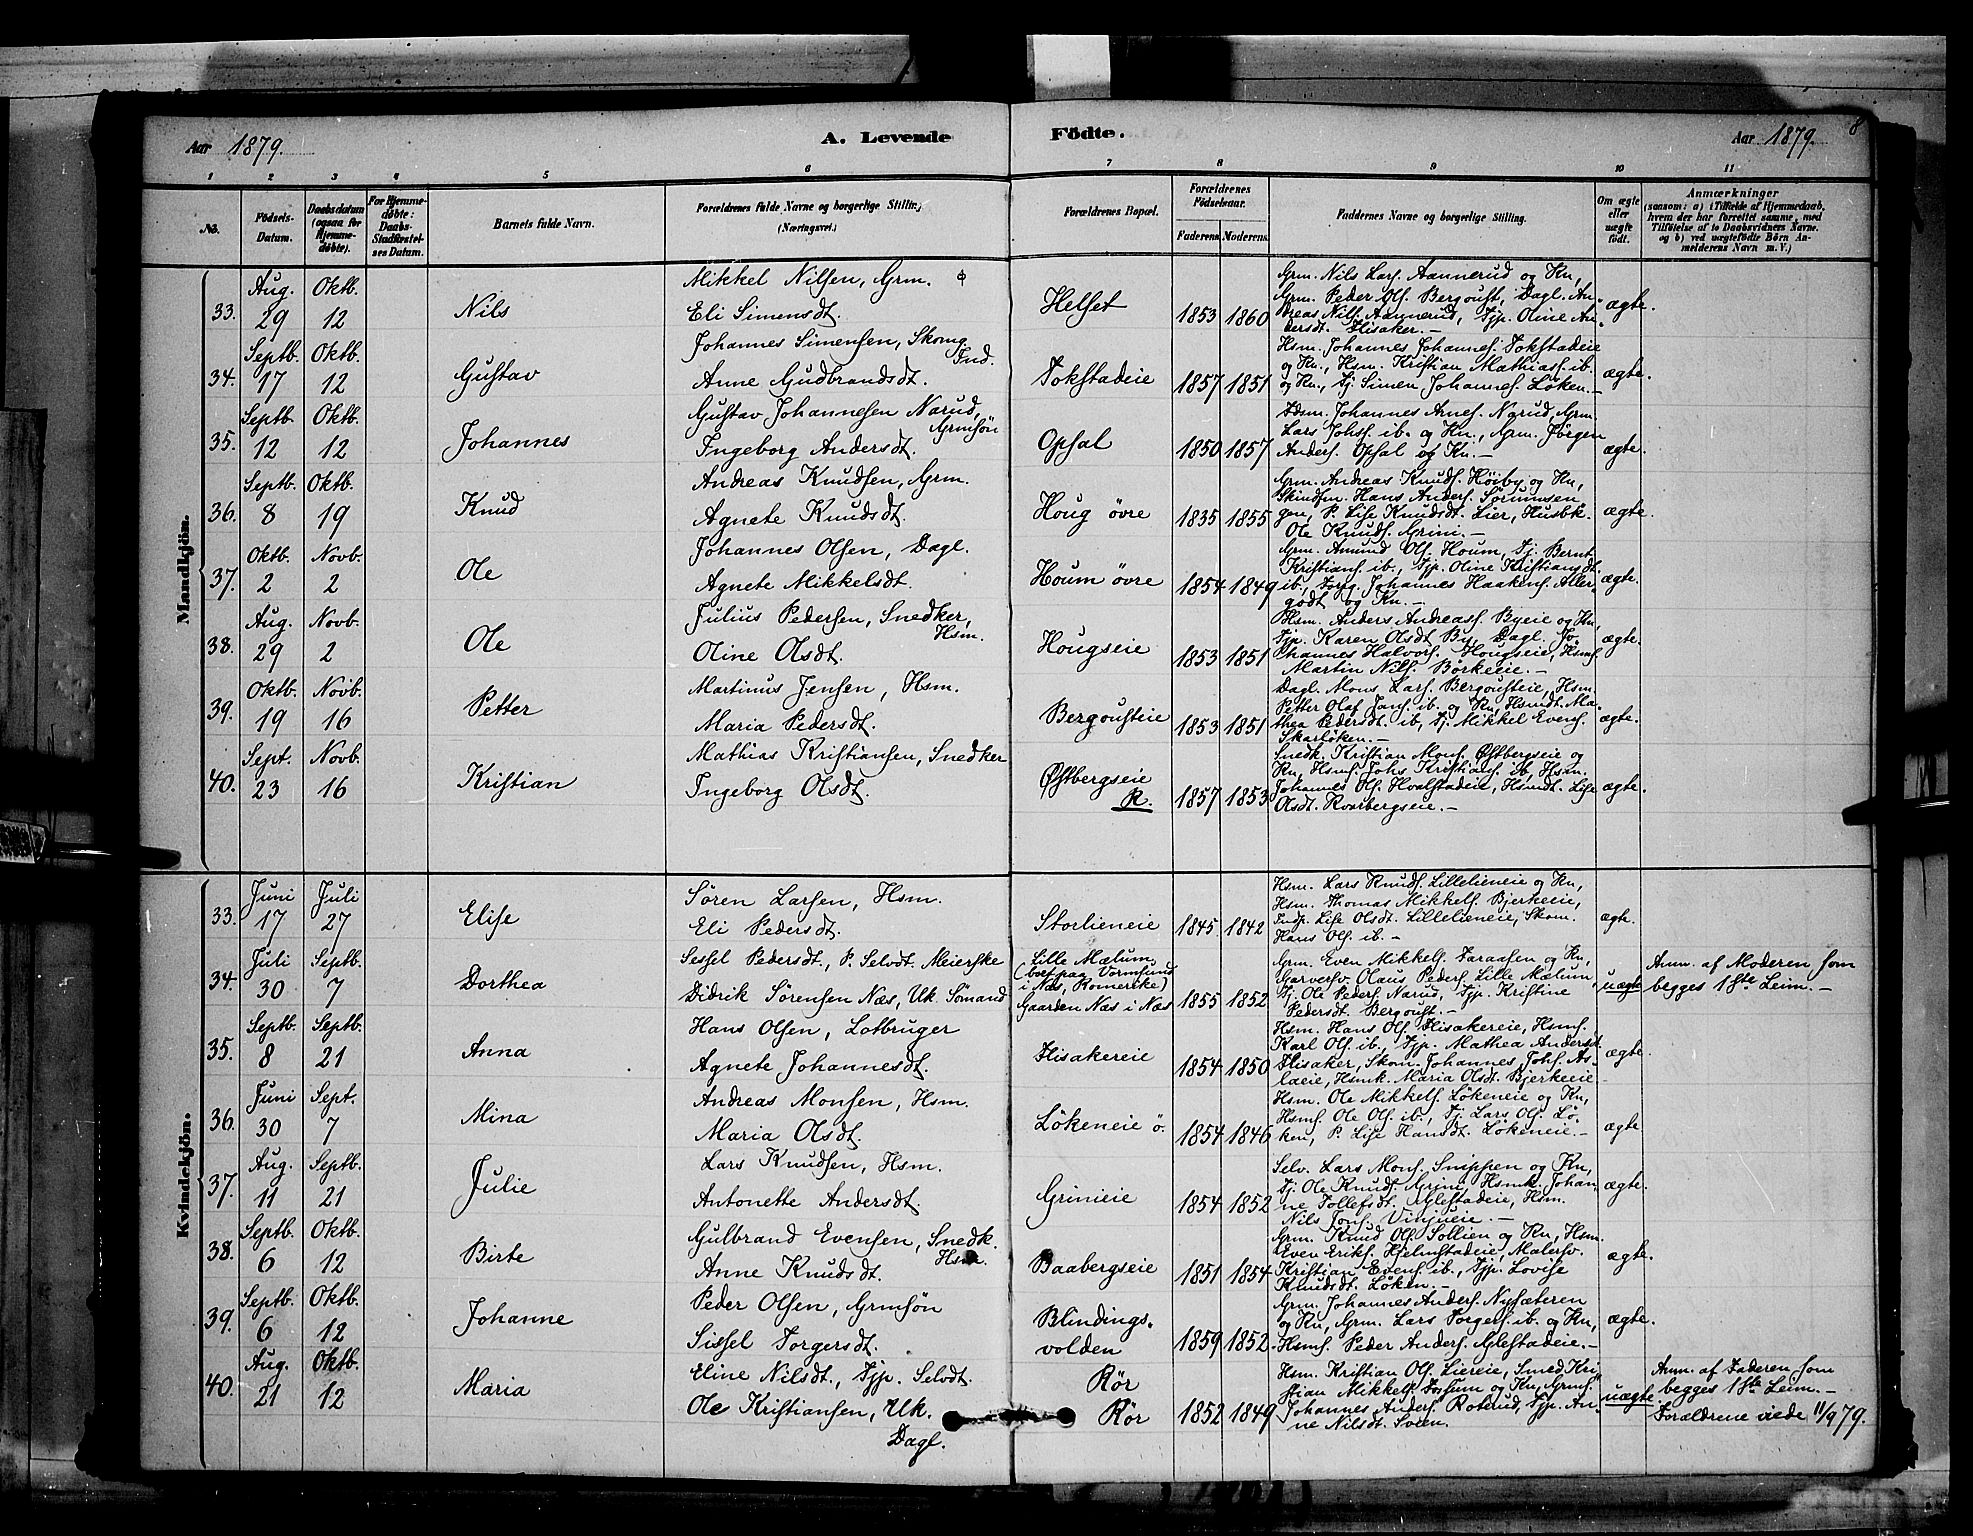 8
Aar 1879.
A. Levende Födte.
Aar 1879.
1 2 3 4 5 6 7 8 9 10 11
No.
Födsels-Datum.
Daabsdatum (ogsaa for Hjemme-döbte).
For Hjemme-döbte: Daabs-Stadfæstel-ses Datum.
Barnets fulde Navn.
Forældrenes fulde Navne og borgerlige Stilling (Næringsvei.)
Forældrenes Bopæl.
Forældrenes Födselsaar.
Faderens. Moderens.
Faddernes Navne og borgerlige Stilling.
Om ægte eller uægte födt.
Anmærkninger
(saasom: a) i Tilfælde af Hjemmedaab, hvem der har forrettet samme, med Tilföielse af to Daabsvidners Navne. og b) ved uægtefödte Börn Anmelderens Navn m. V.)
Mandkjön.
33. Aug. 29 Oktb. 12 Nils
Mikkel Nilsen, Grm.
Eli Simensdt.
Helset 1853 1860
Grm. Nils Lars. Aannerud og Kn,
Grm. Peder Ols. Bergoust, Dagl. An-
dreas Nils. Aannerud, Tjp. Oline An-
dersdt. Flisaker.-
ægte.
34. Septb. 17 Oktb. 12 Gustav
Johannes Simensen, Skomg. Ind.
Anne Gudbrandsdt.
Tokstadeie 1857 1851
Hsm. Johannes Johannes. Tokstadeie
og Kn., Hsm. Kristian Mathias. ib.
og Kn., Tj. Simen Johannes. Løken.-
ægte.
35. Septb. 12 Oktb. 12 Johannes
Gustav Johannesen Narud, Grmsön
Ingeborg Andersdt.
Opsal 1850 1857
Johannes Arnes. Narud, Grm.
Lars Johs. ib. og Kn., Grm. Jörgen
Anders. Opsal og Kn.-
ægte.
36. Septb. 8 Oktb. 19 Knud
Andreas Knudsen, Grm.
Agnete Knudsdt.
Houg övre 1835 1855
Grm. Andreas Knuds. Höiby og Kn,
Hans Anders. Sörumsen-
gen, P. Lise Knudsdt. Lier, Husbk.
Ole Knuds. Grini.-
ægte.
37. Oktb. 2 Novb. 2 Ole
Johannes Olsen, Dagl.
Agnete Mikkelsdt.
Houm övre 1854 1849
Grm. Amund Ols. Houm, Tj. Bernt
Kristians. ib., Tjp. Oline Kristiansdt.
ib., Johannes Haakens. Aller-
godt og Kn.-
ægte.
38. Aug. 29 Novb. 2 Ole
Julius Pedersen, Snedker, Hsm.
Oline Olsdt.
Hougseie 1853 1851
Hsm. Anders Andreas. Byeie og Kn,
Tjp. Karen Olsdt By, Dagl. Jo-
hannes Halvors. Hougseie, Hsms.
Martin Nils. Börkeeie.-
ægte.
39. Oktb. 19 Novb. 16 Petter
Martinus Jensen, Hsm.
Maria Pedersdt.
Bergousteie 1853 1851
Dagl. Mons Lars. Bergousteie, Hsm.
Petter Olaf Jans. ib. og Kn, Hsmdt. Ma-
thea Pedersdt. ib, Tj. Mikkel Evens.
Skarlöken.-
ægte.
40. Sept. 23 Novb. 16 Kristian
Mathias Kristiansen, Snedker
Ingeborg Olsdt.
Østbergseie R. 1857 1853
Snedk. Kristian Mons. Østbergseie og
Kn, Hsms. Johs. Kristians. ib, Hsm.
Johannes Ols. Hvalstadeie, Hsmdt. Lise
Olsdt. Kvarbergseie.-
ægte.
Kvindekjön.
33. Juni 17 Juli 27 Elise
Sören Larsen, Hsm.
Eli Pedersdt.
Storlieneie 1845 1842
Hsm. Lars Knuds. Lillelieneie og Kn,
Hsm. Thomas Mikkels. Bjerkeeie,
Indp. Lise Olsdt. Lillelieneie, Skom.
Hans Ols. ib.-
ægte.
34. Juli 30 Septb. 7 Dorthea
Sessel Pedersdt., P. Selvdt. Meierske
Didrik Sörensen Næs, Uk. Sömand
Lille Mælum
(bort paa Vormsund
i Næs, Romerike)
Gaarden Næs i Næs
1855 1852
Grm. Even Mikkels. Faraasen og Kn,
Garversv. Olaus Peders. Lille Mælum,
Tj. Ole Peders. Narud, Tjp. Kristine
Pedersdt. Bergoust.-
uægte
Anm. af Moderen som
begges 1ste Leim.-
35. Septb. 8 Septb. 21 Anna
Hans Olsen, Lotbruger
Agnete Johannesdt.
Flisakereie 1854 1850
Hsm. Hans Ols. Flisakereie, Hsms.
Karl Ols. ib., Tjp. Mathea Andersdt
Flisaker, Skom. Johannes Johs. As-
laeie, Hsmk. Maria Olsdt. Bjerkeeie
ægte.
36. Juni 30 Sept. 7 Mina
Andreas Monsen, Hsm.
Maria Olsdt.
Lökeneie ö. 1854 1846
Hsm. Ole Mikkels. Lökeneie og Kn,
Hsms. Ole Ols. ib., Tj. Lars Ols. Lö-
ken, P. Lise Hansdt. Lökeneie.-
ægte
37. Aug. 11 Septb. 21 Julie
Lars Knudsen, Hsm.
Antonette Andersdt
Grinieie 1854 1852
Selv. Lars Mons. Snippen og Kn,
Tj. Ole Knuds. Grini, Hsmk. Johan-
ne Tollefsdt. Alestadeie, Hsm.
Nils Tons. Vinjueie.-
ægte.
38. Septb. 6 Oktb. 12 Birte
Gulbrand Evensen, Snedk. Hsm.
Anne Knudsdt.
Baabergseie 1851 1854
Grm. Knud Ols. Sollien og Kn, Hsm.
Even Eriks. Hjelmstadeie, Malersv.
Kristian Evens. ib., Tjp. Lovise
Knudsdt. Löken.-
ægte.
39. Septb. 6 Oktb. 12 Johanne
Peder Olsen, Grmsön
Sissel Torgersdt.
Blindings-
volden 1859 1852
Grm. Johannes Anders. Nysæteren
og Kn, Grm. Lars Torgers. ib. og Kn,
Hsms. Peder Anders. Alestadeie.-
ægte.
40. Aug. 21 Oktb. 12 Maria
Eline Nilsdt., Tjp. Selvdt.
Ole Kristiansen, Uk. Dagl.
Rör
Rör 1852 1849
Hsm. Kristian Ols. Liereie, Smed Kri-
stian Mikkels. Fossum og Kn, Grms.
Johannes Anders. Roterud, Tjp. An-
ne Nilsdt. Sveen.
uægte
Anm. af Faderen som
begges 1ste Leim.-
Forældrene viede 11/9 79.